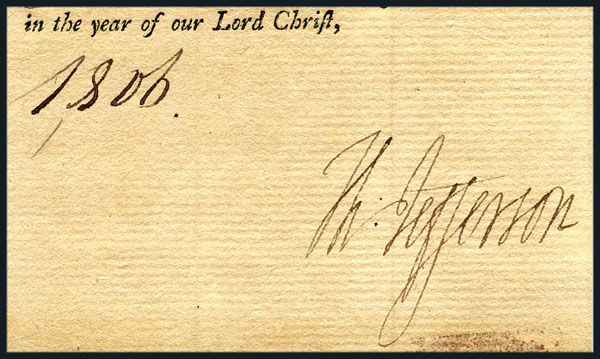 in the year of our Lord Chriſt,
1806.
Th: Jefferson